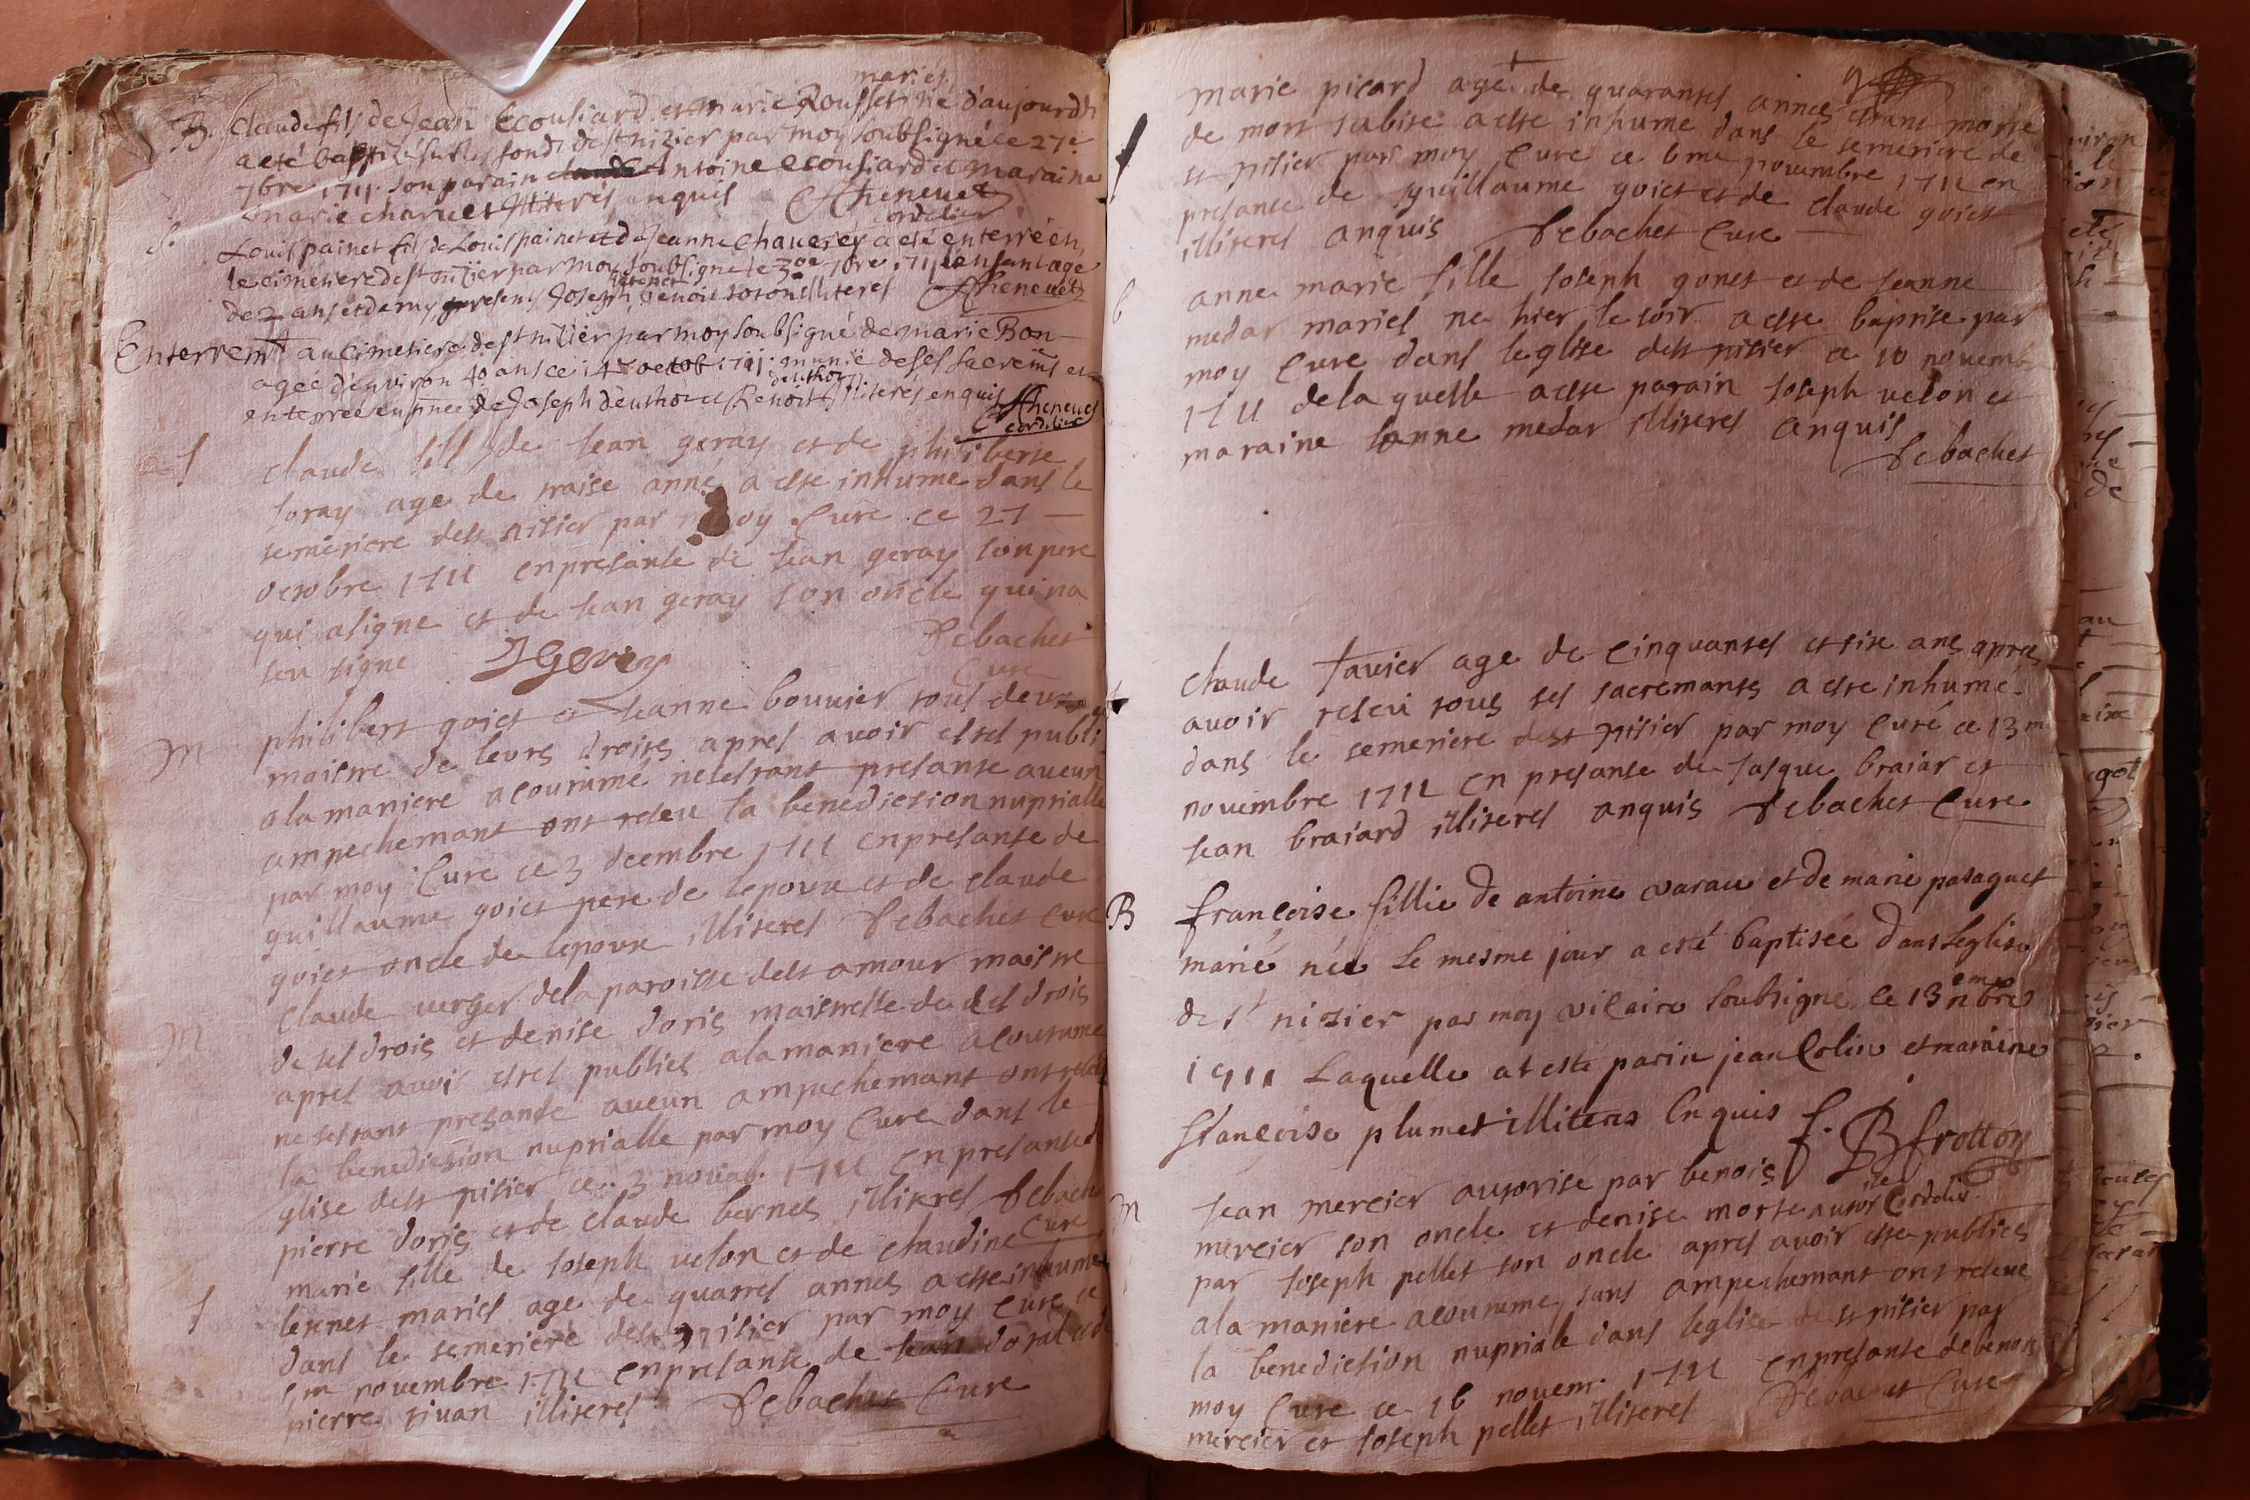 mariés
B. Claude fils de Jean Ecoufiard et marie Rousset né d'aujourdh
a eté baptizé sur les fonds de st nizier par moy soubsigné ce 27e
7bre 1711. son parain Antoine ecoufiard et maraine
marie charuet illiterés enquis fthenevet
cordelier
S. Louis painet fils de Louis painet et de Jeanne chaverey a eté enterré en
le cimetiere de st nizier par moy soubsigné le 30e 7bre 1711 enfant agé
de 2 ans et demy presens Joseph benoist illiteres fthenevet
Enterremt au cimetiere de st nizier par moy soubsigné de marie Bon
agée d'environ 40 ans ce 14e octob 1711 munie de ses sacremts et
enterrée en pnce de Joseph deuthoz et Benoist deuthoz illiterés enquis fthenevet
cordelier
S claude fill de Jean geray et de philiberte
Soray age de traise anné a este inhume dans le
semetiere dest nisier par moy Cure ce 27
octobre 1711 en presanse de Jean geray son pere
qui asigne et de Jean geray son oncle qui na
seu signe JGeray Debachet
Cure
M philibert goiet et Jeanne bouvier tous deux
maistre de leurs droits apres avoir estes publi
ala maniere acoutumé ne sestant presante aucun
ampechemant ont reseu la benediction nuptialle
par moy Cure ce 3 decembre 1711 en presanse de
guillaume goiet pere de lepoux et de claude
goiet oncle de lepoux illiteres Debachet cure
M claude verger dela paroisse dest amour maistre
de ses drois et denise doris maistresse de ses drois
apres avoir estes publies ala maniere acoutume
ne sestant presante aucun ampechemant ont reseu
la benediction nuptialle par moy Cure dans le
glise dest nisier ce 3 novab. 1711 en presanse d
pierre doris et de claude bernet illiteres Debach
Cure
S marie fille de Joseph velon et de claudine
Lennet maries age de quatres annes a este inhume
dans le semetiere dest nisier par moy Cure ce
6m novembre 1711 en presanse de Jean
pierre tivan illiteres Debachet Cure
marie picard agé de quarantes annes estant morte
de mort subite a este inhume dans le semetiere de
st nisier par moy Cure ce 6me novembre 1711 en
presanse de guillaume goiet et de claude goiet
illiteres anquis Debachet Cure
b anne marie fille Joseph gonet et de Jeanne
medar maries ne hier le soir a este baptise par
moy Cure dans leglise dest nisier ce 10 novemb
1711 de la quelle a este parain Joseph velon et
maraine Janne medar illiteres anquis
Debachet
claude Tavier age de cinquantes et sise ans apres
avoir reseu tous ses sacremants a este inhume
dans le semetiere dest nisier par moy Curé ce 13m
novembre 1711 en presanse de Jasque braiar et
Jean braiard illiteres anquis Debachet Cure
B françoise fillie de antoine varau et de marie pasaquet
marié née le mesme jour a esté baptisée dans leglise
de st nizier par moy vicaire soubsigné ce 13eme nbre
1711 Laquelle at este parin jean Colin et maraine
françoise plumet illiteras Enquis f. B frotton
Cordelier
M Jean mercier autorise par benois
mercier son oncle et denise morte autorise
par Joseph pellet son oncle apres avoir este publies
ala maniere acoutume sans ampechemant ont reseue
la benediction nuptiale dans leglise de st nisier par
moy Cure ce 16 novem. 1711 en presanse de benois
mercier et Joseph pellet illiteres Debachet Cure